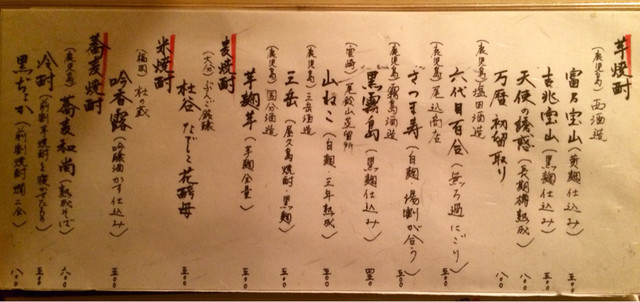 芋焼酎
(鹿児島) 西酒造
富乃宝山 (黄麹仕込み) 五〇〇
吉兆宝山 (黒麹仕込み) 五〇〇
天使の誘惑 (長期樽熟成) 八〇〇
万暦 初留取り 八〇〇
(鹿児島) 塩田酒造
六代目百合 (無ろ過にごり) 五〇〇
(鹿児島) 尾込商店
さつま寿 (白麹・湯割が合う) 五〇〇
(鹿児島) 霧島酒造
黒霧島 (黒麹仕込み) 四五〇
(宮崎) 尾鈴山蒸留所
山ねこ (白麹・三年熟成) 五〇〇
(鹿児島) 三岳酒造
三岳 (屋久島焼酎・黒麹) 五〇〇
(鹿児島) 国分酒造
芋麹芋 (芋麹全量) 五〇〇
麦焼酎
(大分) ぶんご銘醸
杜谷 なでしこ花酵母 五〇〇
米焼酎
(福岡) 杜の蔵
吟香露 (吟醸酒かす仕込み) 五〇〇
蕎麦焼酎
(鹿児島) 蕎麦和尚 (熟成そば) 六〇〇
冷酎 (前割芋焼酎を寝かせたもの) 五〇〇
黒ぢょか (前割焼酎燗二合) 八〇〇